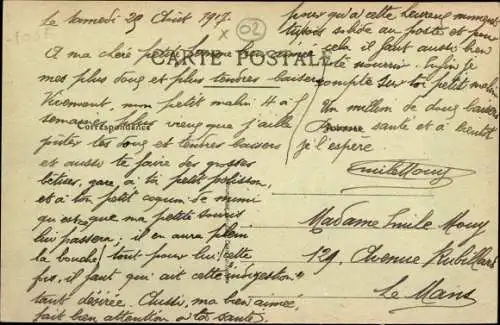 Le Samedi 29 Août 1917.
A ma chère petite femme bien aimée
mes plus doux et plus tendres baisers
Vivement, mon petit malin 4 à 5
semaines que j'aille
goûter tes doux et tendres baisers
et aussi te faire des grosses
bêtises, gare à ta petit polisson,
et à ton petit coquin de mimi
qu'est que ma petite souris
lui passera; il en aura plein
la bouche, tout pour lui cette
fois, il faut qui ait cette "indigestion"
tant désirée. Aussi, ma bien aimée,
fait bien attention à ta santé.
CARTE POSTALE
Correspondance
02
pour qu'à cette heureux moment
tu sois solide au poste et pour
cela il faut aussi bien
te nourrir. Enfin je
compte sur toi petit malin
Un million de doux baisers
Bonne santé et à bientôt
je l'espère
Madame Emile
129, Avenue Rubillard
Le Mans